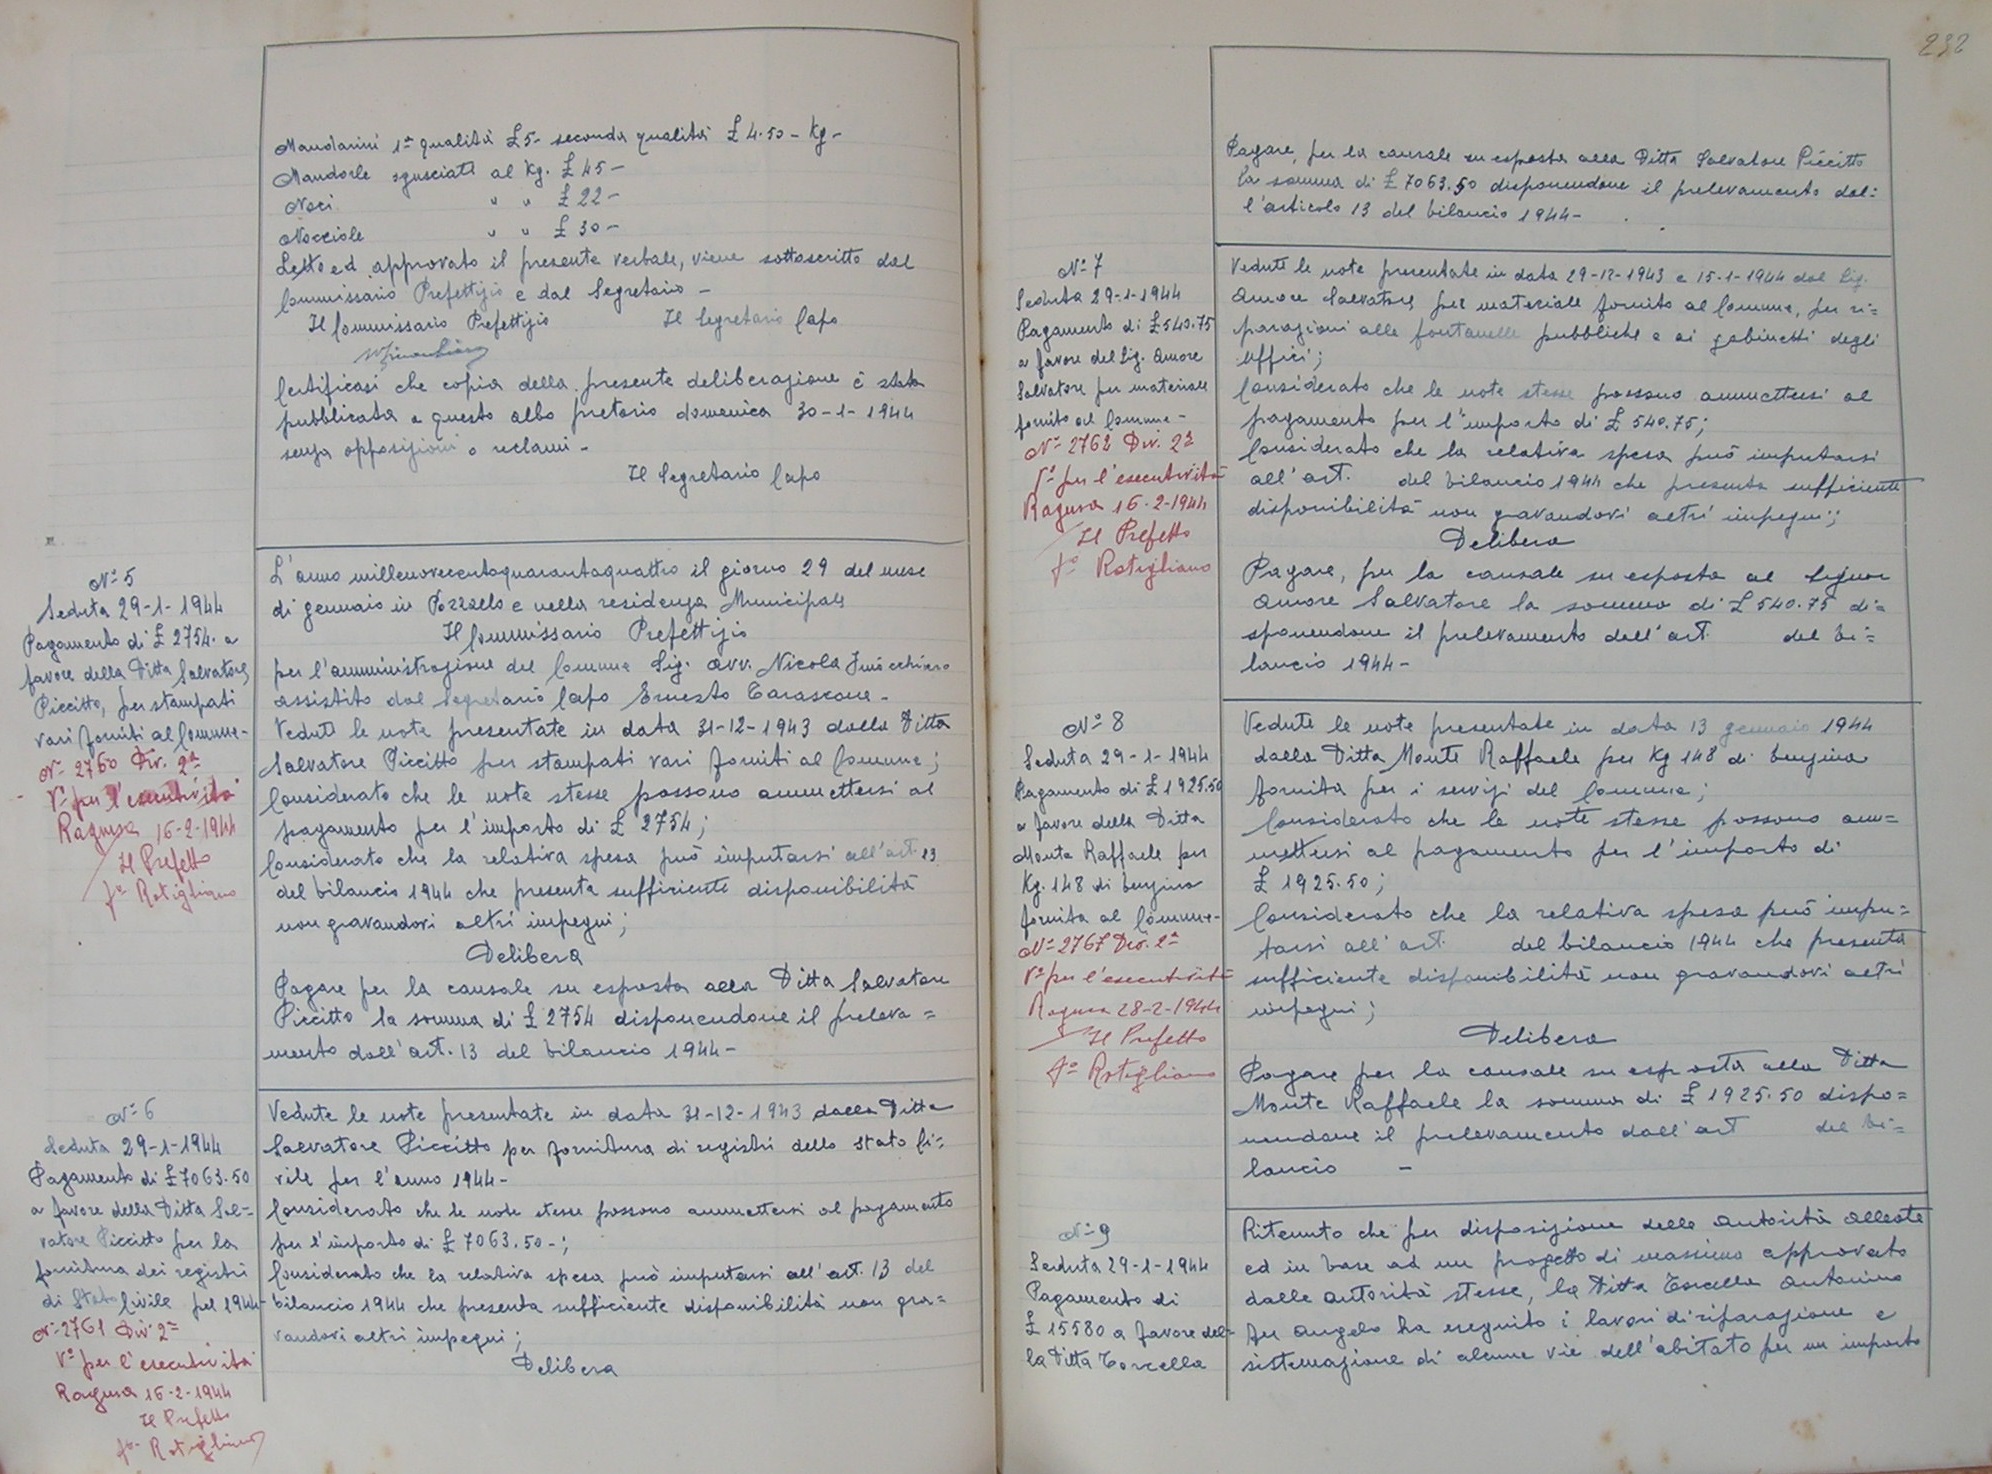 Mandarini 1ª qualità £5- seconda qualità £ 4.50 - Kg -
Mandorle sgusciate al Kg. £ 45 -
Noci " " £ 22 -
Nocciole " " £ 30 -
Letto ed approvato il presente verbale, viene sottoscritto dal
Commissario Prefettizio e dal Segretario -
Il Commissario Prefettizio Il Segretario Capo
Certificasi che copia della presente deliberazione è stata
pubblicata a questo albo pretorio domenica 30-1-1944
senza opposizioni o reclami -
Il Segretario Capo
Nº 5
Seduta 29-1-1944
Pagamento di £ 2754. a
favore della Ditta Salvatore
Piccitto, per stampati
vari forniti al Comune -
Nº 2760 Div. 2ª
Vº per l'esecutività
Ragusa 16-2-1944
Il Prefetto
fº Rotigliano
L'anno millenovecentoquarantaquattro il giorno 29 del mese
di gennaio in Pozzallo e nella residenza Municipale
Il Commissario Prefettizio
per l'amministrazione del Comune Sig. Avv. Nicola
assistito dal Segretario Capo Ernesto Tarascone -
Vedute le note presentate in data 31-12-1943 dalla Ditta
Salvatore Piccitto per stampati vari forniti al Comune;
Considerato che le note stesse possono ammettersi al
pagamento per l'importo di £ 2754;
Considerato che la relativa spesa può imputarsi all'art. 13
del bilancio 1944 che presenta sufficiente disponibilità
non gravandovi altri impegni;
Delibera
Pagare per la causale su esposta alla Ditta Salvatore
Piccitto la somma di £ 2754 disponendone il preleva =
mento dall'art. 13 del bilancio 1944 -
Nº 6
Seduta 29-1-1944
Pagamento di £ 7063.50
a favore della Ditta Sal=
vatore Piccitto per la
fornitura dei registri
di Stato Civile pel 1944-
Nº 2761 Div 2ª
Vº per l'esecutività
Ragusa 16-2-1944
Il Prefetto
fº Rotigliano
Vedute le note presentate in data 31-12-1943 dalla Ditta
Salvatore Piccitto per fornitura di registri dello stato Ci=
vile per l'anno 1944-
Considerato che le note stesse possono ammettersi al pagamento
per l'importo di £ 7063.50-;
Considerato che la relativa spesa può imputarsi all'art. 13 del
bilancio 1944 che presenta sufficiente disponibilità non gra=
vandovi altri impegni;
Delibera
232
Pagare, per la causale su esposta alla Ditta Salvatore Piccitto
la somma di £ 7063.50 disponendone il prelevamento dal=
l'articolo 13 del bilancio 1944-
Nº 7
Seduta 29-1-1944
Pagamento di £ 540.75
a favore del Sig. Amore
Salvatore per materiale
fornito al Comune -
Nº 2762 Div. 2ª
Vº per l'esecutività
Ragusa 16-2-1944
Il Prefetto
fº Rotigliano
Vedute le note presentate in data 29-12-1943 e 15-1-1944 dal Sig.
Amore Salvatore, per materiale fornito al Comune, per ri=
parazioni alle fontanelle pubbliche e ai gabinetti degli
uffici;
Considerato che le note stesse possono ammettersi al
pagamento per l'importo di £ 540.75;
Considerato che la relativa spesa può imputarsi
all'art. del bilancio 1944 che presenta sufficiente
disponibilità non gravandovi altri impegni;
Delibera
Pagare, per la causale su esposta al Signor
Amore Salvatore la somma di £ 540.75 di=
sponendone il prelevamento dall'art. del bi=
lancio 1944-
Nº 8
Seduta 29-1-1944
Pagamento di £ 1925.50
a favore della Ditta
Monte Raffaele per
Kg. 148 di benzina
fornita al Comune-
Nº 2767 Div. 2ª
Vº per l'esecutività
Ragusa 28-2-1944
Il Prefetto
fº Rotigliano
Vedute le note presentate in data 13 gennaio 1944
dalla Ditta Monte Raffaele per Kg 148 di benzina
fornita per i servizi del Comune;
Considerato che le note stesse possono am=
mettersi al pagamento per l'importo di
£ 1925.50;
Considerato che la relativa spesa può impu=
tarsi all'art. del bilancio 1944 che presenta
sufficiente disponibilità non gravandovi altri
impegni;
Delibera
Pagare per la causale su esposta alla Ditta
Monte Raffaele la somma di £ 1925.50 dispo=
nendone il prelevamento dall'art del bi=
lancio -
Nº 9
Seduta 29-1-1944
Pagamento di
£ 15580 a favore del=
la Ditta Torcella
Ritenuto che per disposizione delle autorità alleate
ed in base ad un progetto di massima approvato
dalle autorità stesse, la Ditta Torcella Antonino
fu Angelo ha eseguito i lavori di riparazione e
sistemazione di alcune vie dell'abitato per un importo